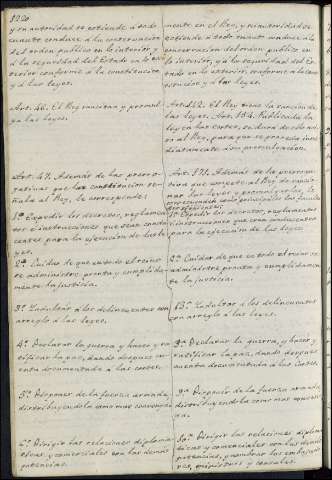 y su autoridad se estiende á todo
cuanto conduce á la conservacion
del orden publico en lo interior, y
á la seguridad del Estado en lo es-
terior conforme á la constitucion
y á las leyes.
Art. 46. El Rey sanciona y promul-
ga las leyes.
Art. 47. Además de las prero-
rativas que la constitucion se-
ñala al Rey, le corresponde:
1º Expedir los decretos, reglamen-
tos é instrucciones que sean condu-
centes para la ejecucion de las le-
yes.
2º Cuidar de que en todo el reino
se administre pronta y cumplida-
mente la justicia.
3º Indultar á los delincuentes con
arreglo á las leyes.
4º Declarar la guerra, y hacer y ra-
tificar la paz, dando despues cu-
enta documentada á las cortes.
5º Disponer de la fuerza armada,
distribuyendola como mas convenga.
6º Dirigir las relaciones diploma-
ticas, y comerciales con las demas
potencias.
mente en el Rey, y su autoridad se
estiende á todo cuanto conduce á la
conservacion del orden publico en
lo interior, y á la seguridad del Es-
tado en lo esterior, conforme á la cons-
titucion y á las leyes.
Art. 142. El Rey tiene la sancion de
las leyes. Art. 154. Publicada la
ley en las cortes, se dará de ello aviso
al Rey, para que se proceda inme-
diatamente á su promulgacion.
Art. 171. Además de la prerroga-
tiva que compete al Rey de sancio-
nar las leyes y promulgarlas, le
corresponden como principales las faculta-
des siguientes:
1ª Expedir los decretos, reglamentos
é instrucciones que crea conducentes
para la ejecucion de las leyes.
2ª Cuidar de que en todo el reino se
administre pronta y cumplidamen-
te la justicia.
13ª Indultar á los delincuentes
con arreglo á las leyes.
3ª Declarar la guerra, y hacer y
ratificar la paz, dando despues
cuenta documentada á las Cortes.
9ª Disponer de la fuerza armada,
distribuyendola como mas conven-
ga.
10ª Dirigir las relaciones diploma-
ticas y comerciales con las demas
potencias, y nombrar los embajado-
res, ministros y consules.